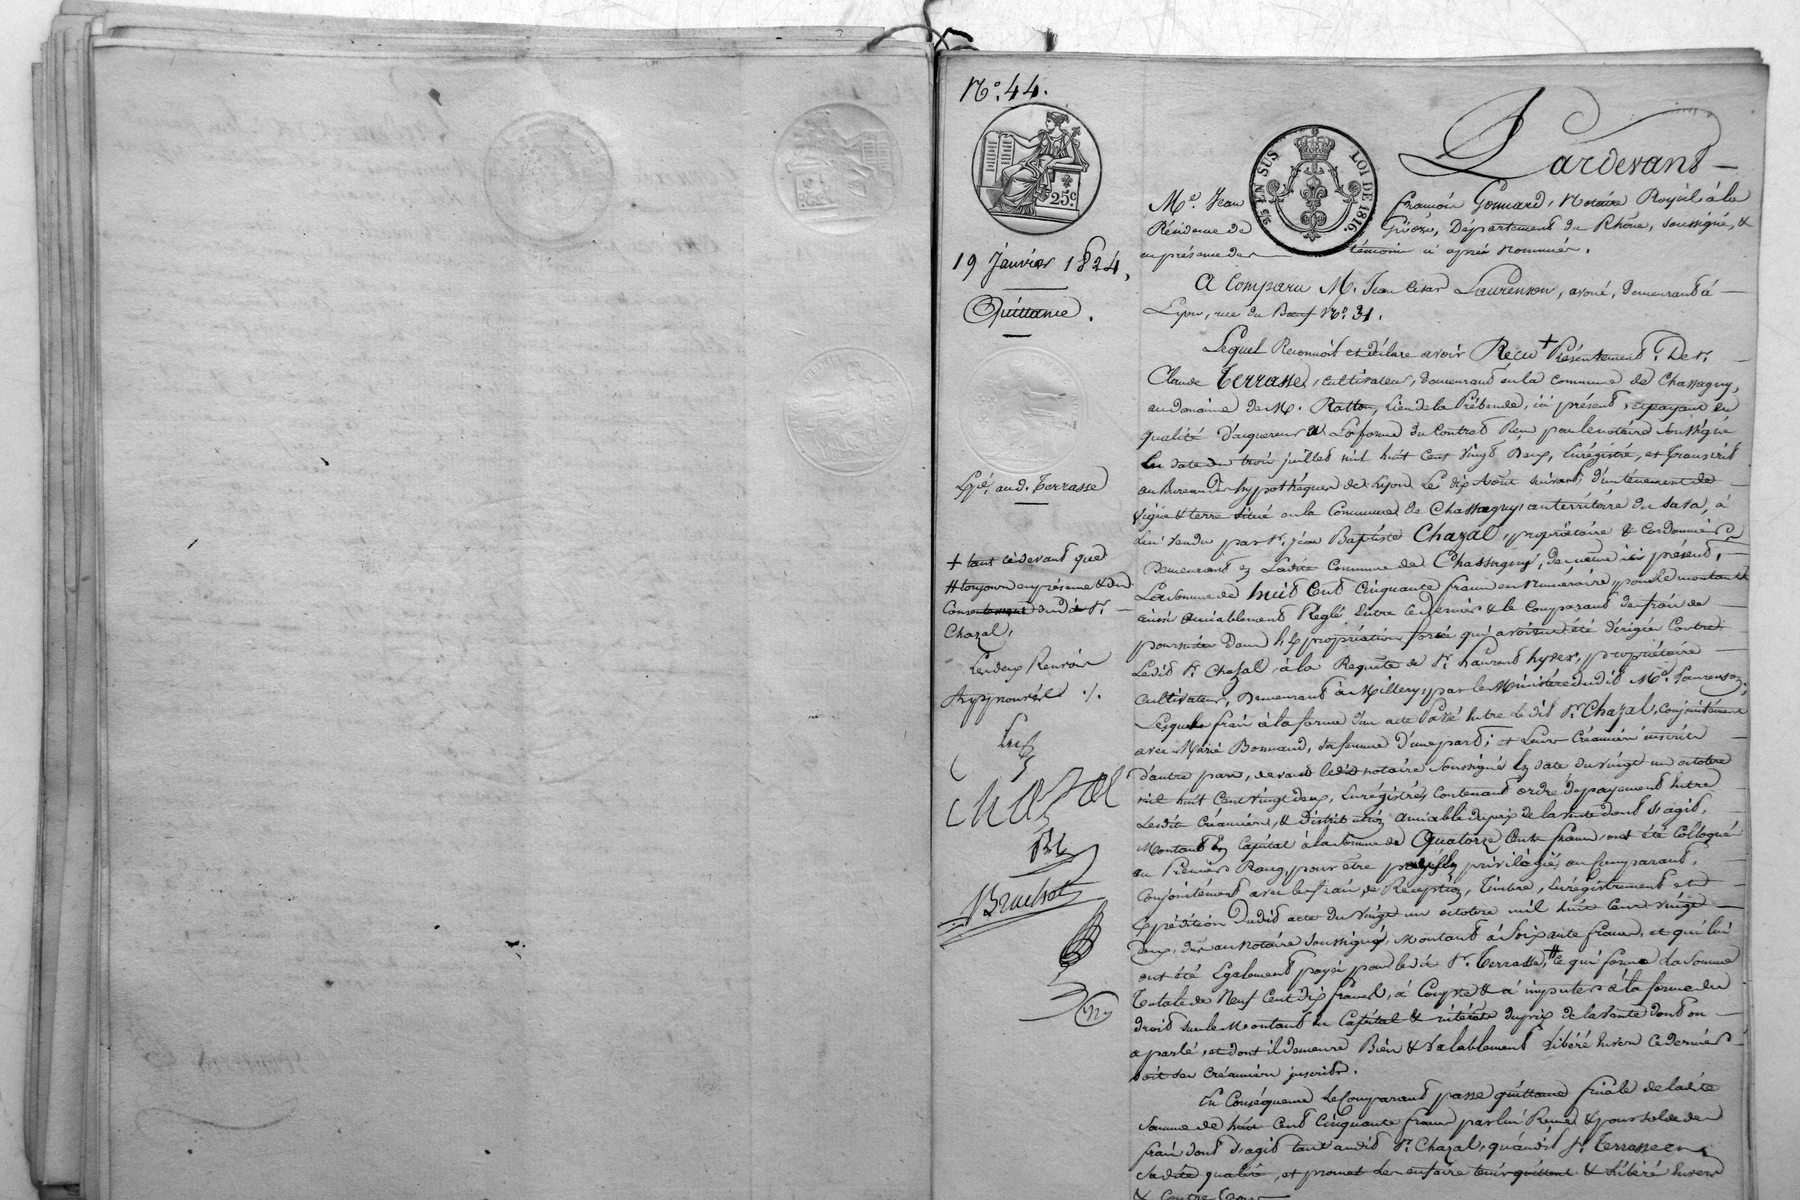 N.° 44.
25c.
25c EN SUS LOI DE 1816.
19 Janvier 1824,
Quittance.
Exp.é aud. Terrasse
+ tant ci devant que
# toujours en présence & du
Consentement du dit Sr.
Chazal,
Les deux Renvois
Approuvés ./.
Chazal
Bruchet
Pardevant
Me. Jean François Gonnard, Notaire Royal à la
Résidence de Givors, Département du Rhône, soussigné, &
en présence des témoins ci après nommés.
A Comparu M. Jean César Laurenson, avoué, demeurant à
Lyon, rue du Bœuf No. 31.
Lequel Reconnoit et déclare avoir Recu + Présentement. De Sr.
Claude Terrasse, cultivateur, demeurant en la commune de Chassagny,
au domaine de M. Ratton, lieu de la Prébende, ici présent, et payant en
qualité d'acquereur à la forme du Contrat Reçu par le notaire Soussigné
En date du trois juillet mil huit Cent Vingt Deux, Enrégistré, et transcrit
au Bureau des hypothéques de Lyon Le dix Août suivant, d'un tènement de
Vigne & terre situé en la Commune de Chassagny au territoire du sara, à
Lui Vendu par Sr. jean Baptiste Chazal, propriétaire & Cordonnier
Demeurant en Ladite Commune de Chassagny, de même ici présent,
La Somme de huit Cent Cinquante francs en numéraire, pour le montant
ainsi amiablement Reglé Entre ce dernier & le Comparant des frais de
poursuite dans l'Expropriation forcée qui avoient été dirigée Contre
Ledit Sr. Chazal à la Requête de Sr. Laurent hyver, propriétaire
Cultivateur, Demeurant à Millery, par le Ministère dudit Me. Laurenson,
Lesquels frais à la forme d'un acte Passé Entre Le dit Sr. Chazal, Conjointement
avec Marie Bonnand, sa femme d'une part, et Leurs Créanciers inscrits
d'autre part, devant ledit notaire Soussigné En date du vingt un octobre
mil huit Cent vingt deux, Enrégistrés, Contenant ordre de payement Entre
Lesdits Créanciers, & distribution amiable du prix de la Vente dont s'agit,
Montant En Capital à la Somme de Quatorze Cents francs, ont été Colloqué
au Premier Rang, pour être par privilégiés au Comparant,
Conjointement avec les frais de Réception, Timbre, Enrégistrement et
Expédition Dudit acte du Vingt un octobre mil huit Cent vingt
deux, dus au Notaire Soussigné, Montant à Soixante francs, et qui lui
ont été Egalement payés par ledit Sr. Terrasse, # Ce qui forme La Somme
Totale de Neuf Cent dix francs, à Compte & à imputer à la forme du
droit sur le Montant En Capital & intérêts du prix de la Vente dont on
a parlé, et dont il demeure Bien & Valablement Libéré Envers Ce dernier
soit ses Créanciers inscrits.
En Conséquence Le Comparant passe quittance finale de ladite
Somme de huit Cent Cinquante francs par lui Reçue & pour solde des
frais dont s'agit tant audit Sr. Chazal, qu'audit Sr. Terrasse en
Sadite qualité, et promet les en faire tenir quittent & Libéré Envers
& Contre Tous